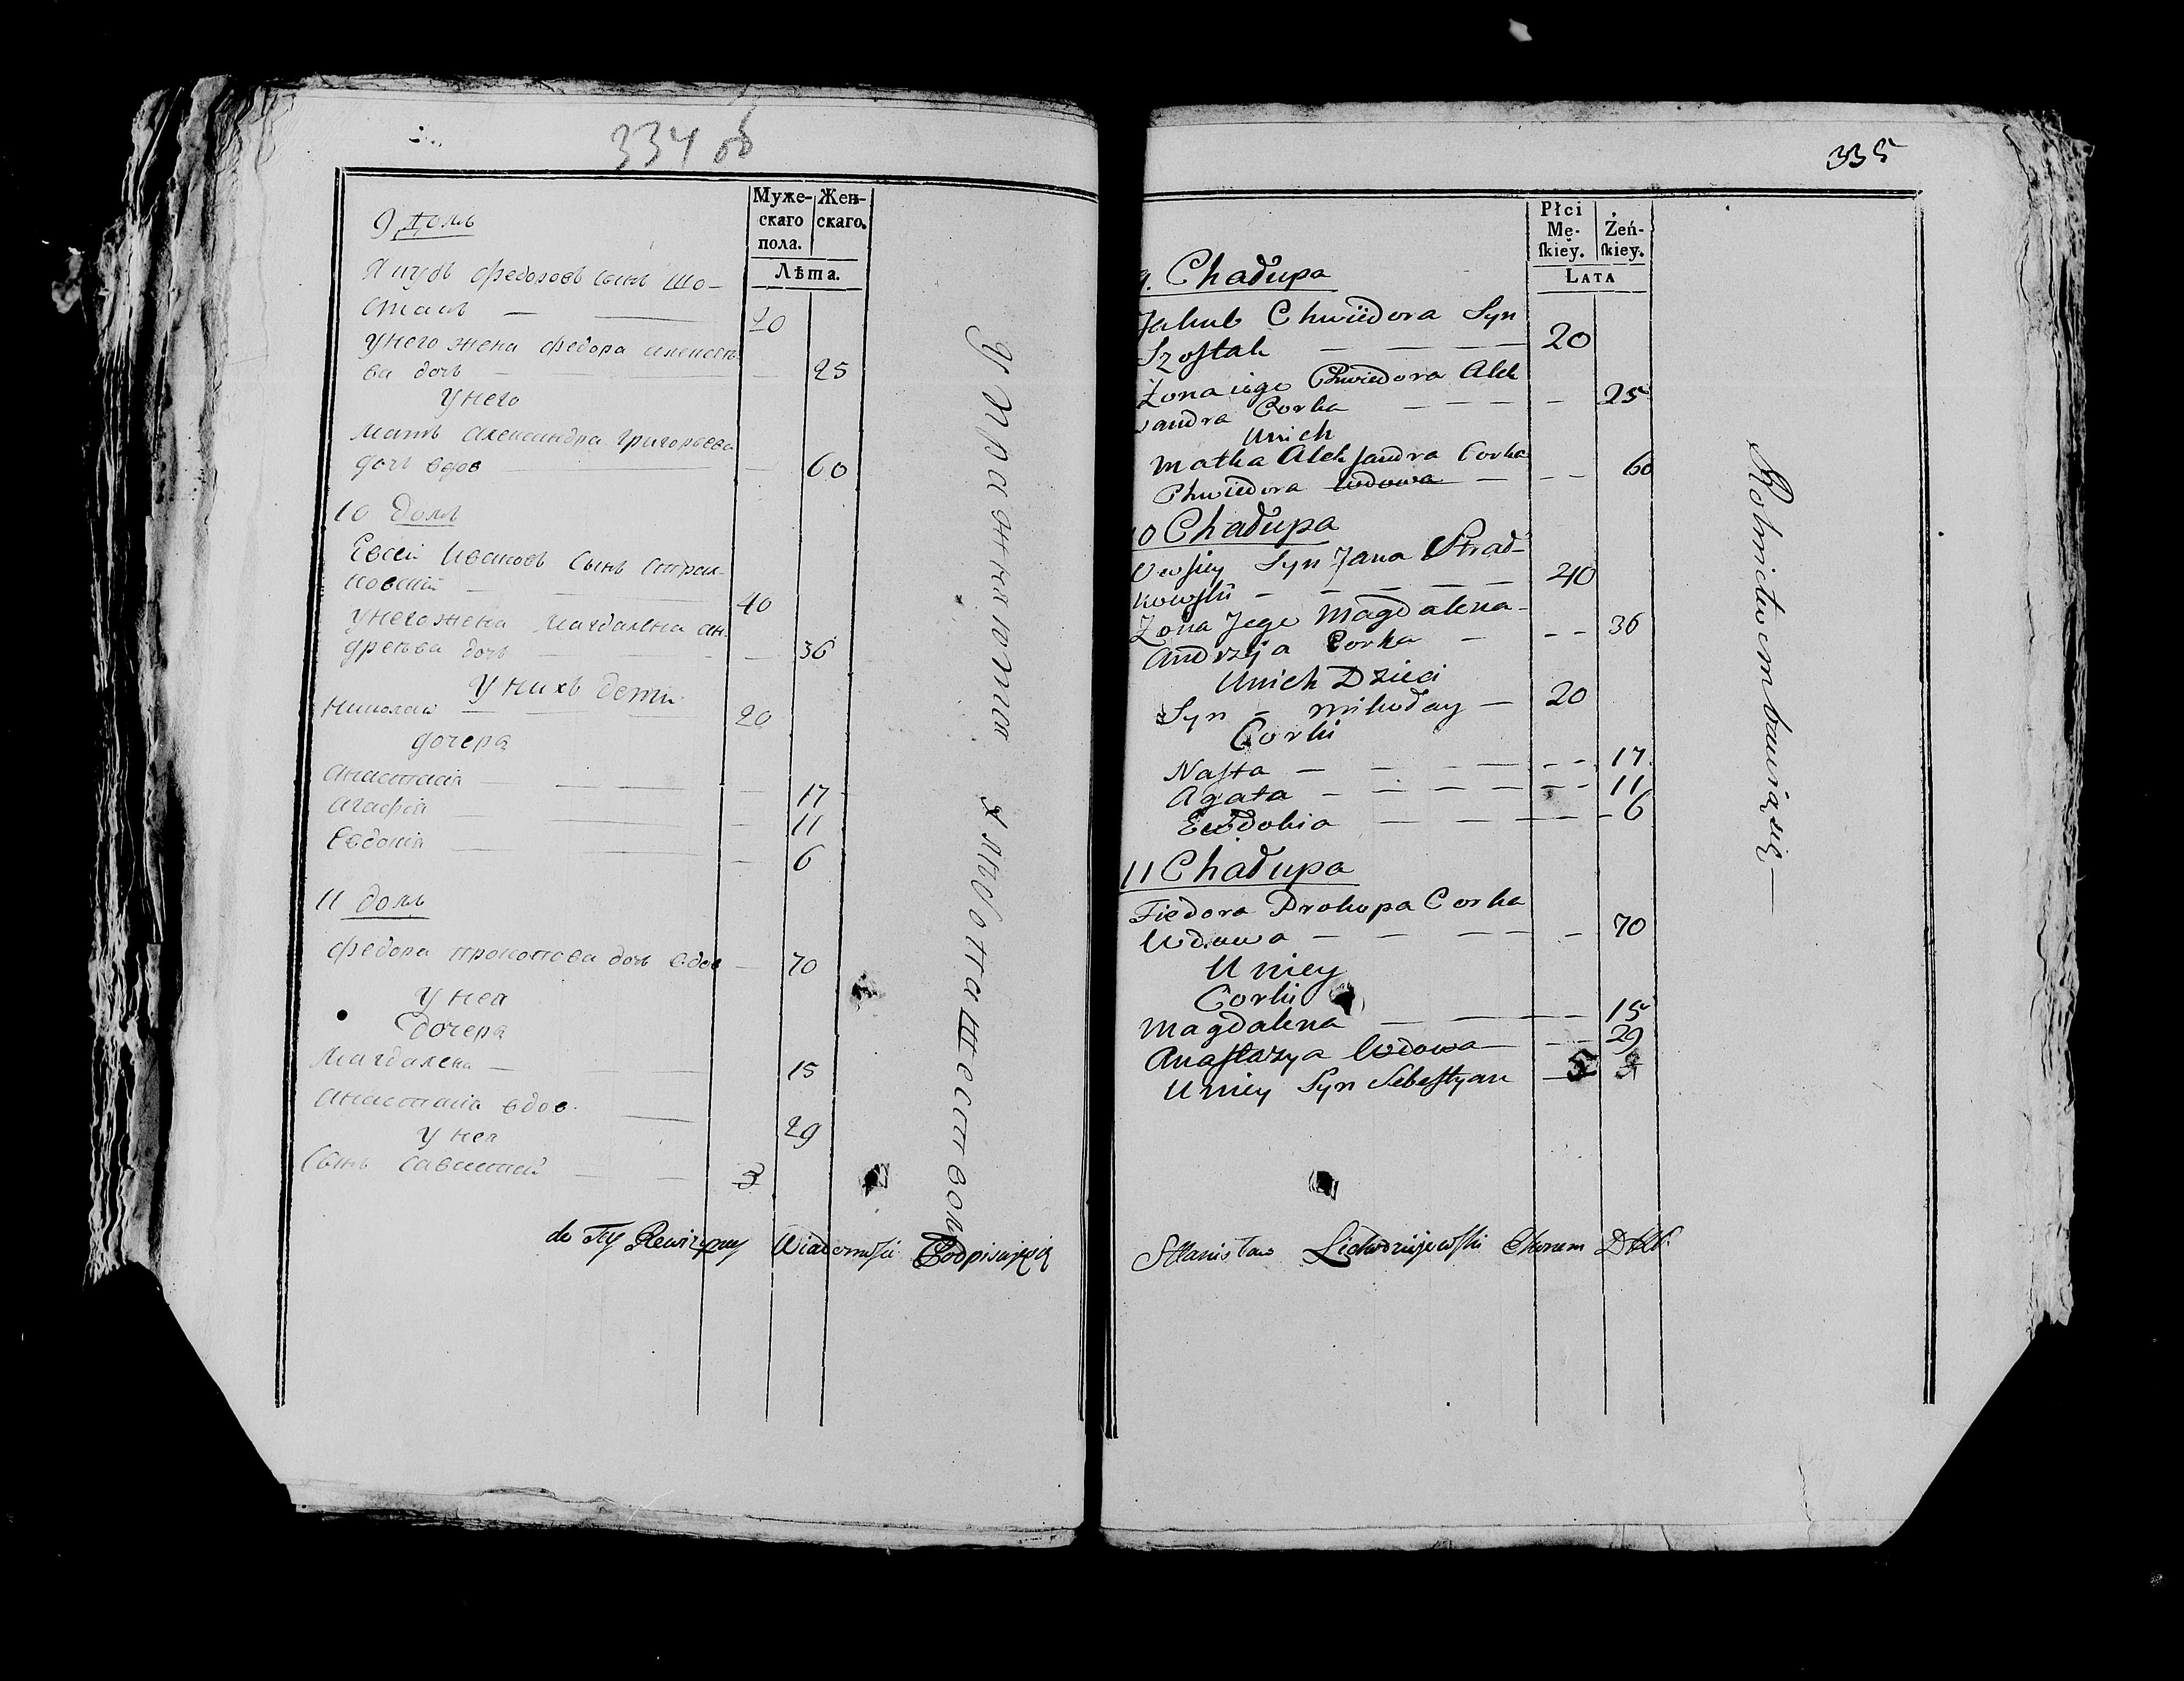 334 об
Муже-
скаго
пола.
Жен-
скаго.
Лѣта.
9 Домъ
Якубъ федоровъ сынъ шо-
стакъ — — 20
унего жена федора алексее
ва дочь — — 25
Унего
мать александра григорьева
дочь вдов — 60
10 домъ
Евсей Ивановъ Сынъ Страд-
ковский — 40
унего жена магдалена ан-
дреева дочь — 36
У нихъ дети
николай — — 20
дочера
анастасия — — 17
агафия — — 11
Евдокия — — 6
11 домъ
федора прокопова дочь вдов — 70
У нея
дочера
магдалена — — 15
анастасия вдов. — 29
у нея
Сынъ савастей — — 3
упражняются хлебопашествомъ
do Tey Rewizyiney Wiadomości Podpisuję się
335
Płci
Mę-
ſkiey.
Żeń-
ſkiey.
LATA
9. Chałupa
Jakub Chwiedora Syn
Szostak — — — 20
Żona iego Chwiedora Alek
sandra Corka — — — 25
Unich
Matka Aleksandra Corka
Chwiedora wdowa — — — 60
10 Chałupa
Owsiey Syn Jana Strad-
kowski — — — — 40
Żona Jego Magdalena
Andrzeja Corka — — — 36
Unich Dzieci
Syn — Mikołay — 20
Corki
Nasta — — — — 17
Agata — — — — 11
Ewdokia — — — — 6
11 Chałupa
Fiedora Prokopa Corka
Wdowa — — — — 70
U niey
Corki
Magdalena — — — 15
Anastazya Wdowa — — 29
U niey Syn Sebestyan — 3
Rolnictwem bawią się —
Stanisław Chorom